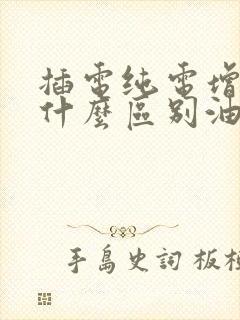 插電纯電增
什麼區别油
手島史詞 板橋